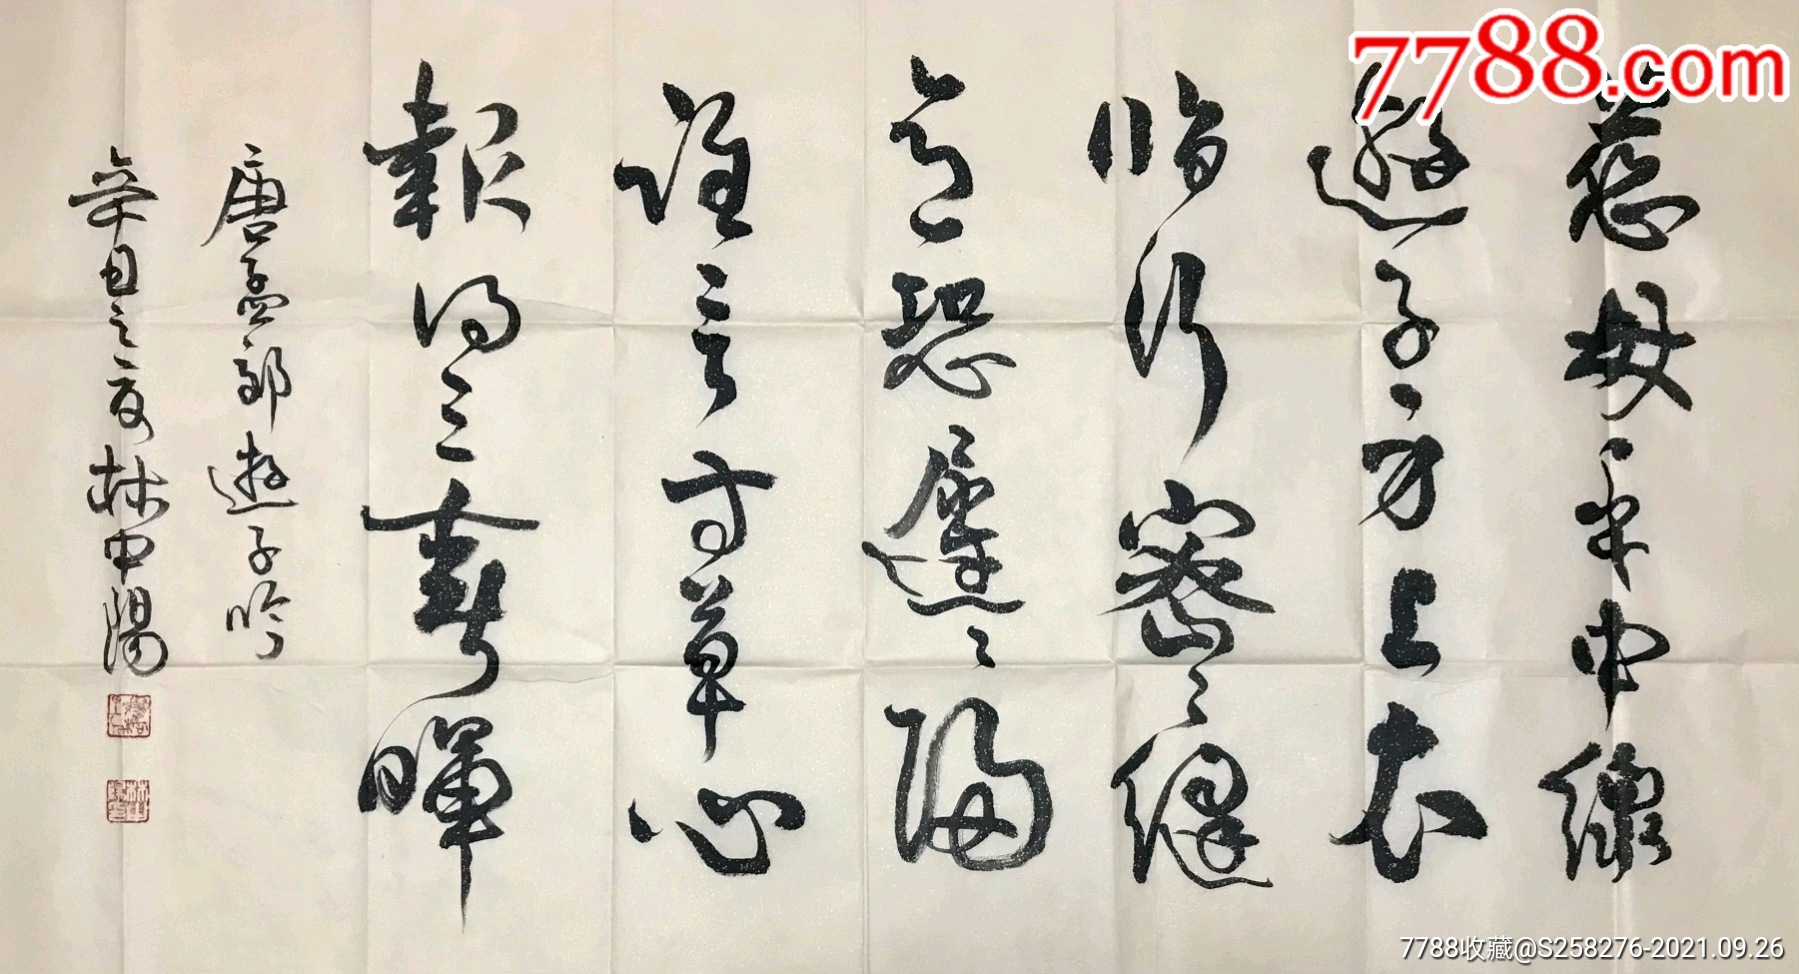 慈母手中線
遊子身上衣
臨行密々縫
意恐遲々歸
誰言寸草心
報得三春暉
唐孟郊遊子吟
辛丑之夏林中陽
7788.com
7788收藏@S258276-2021.09.26